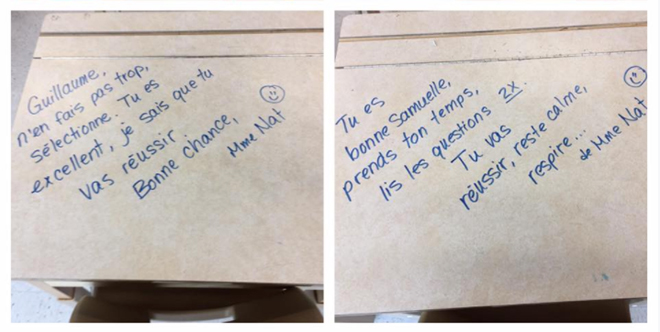 Guillaume,
n'en fais pas trop,
sélectionne. Tu es
excellent, je sais que tu
vas réussir.
Bonne chance,
Mme Nat
Tu es
bonne Samuelle,
prends ton temps,
lis les questions 2X.
Tu vas
réussir, reste calme,
respire...
de Mme Nat